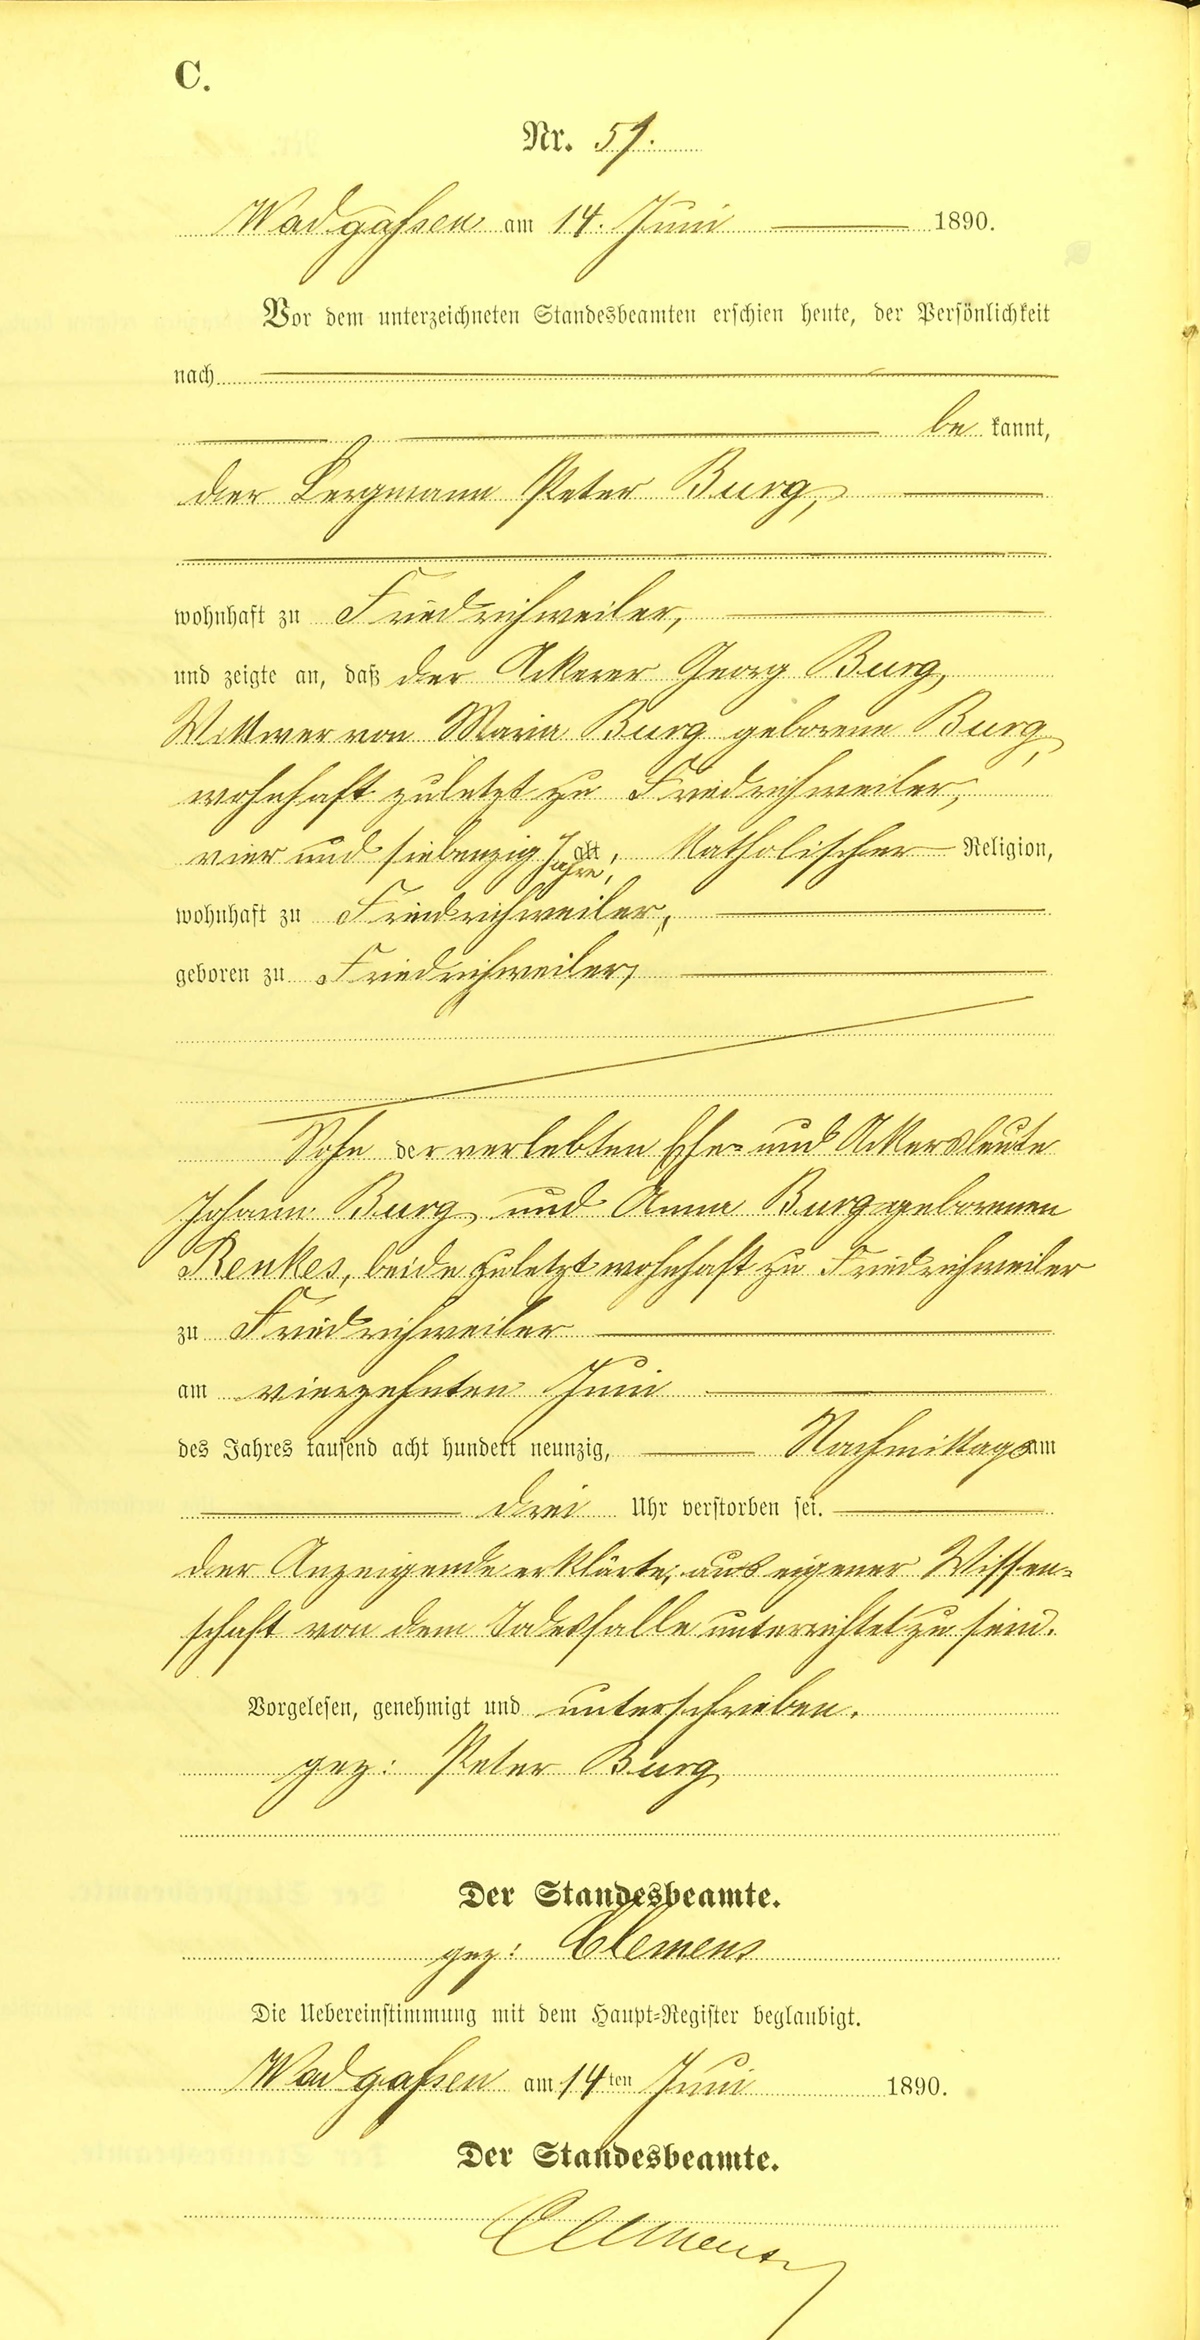 C.
Nr. 59.
Wadgassen am 14. Juni 1890.
Vor dem unterzeichneten Standesbeamten erschien heute, der Persönlichkeit
nach
be kannt,
der Bergmann Peter Burg,
wohnhaft zu Friedrichweiler,
und zeigte an, daß der Ackerer Georg Burg,
Wittwer von Maria Burg geborene Burg,
wohnhaft zuletzt zu Friedrichweiler,
vier und siebenzig Jahre alt, Katholischer Religion,
wohnhaft zu Friedrichweiler,
geboren zu Friedrichweiler,
Sohn der verlebten Ehe- und Ackersleute
Johann Burg und Anna Burg geborenen
Renkes, beide zuletzt wohnhaft zu Friedrichweiler
zu Friedrichweiler
am vierzehnten Juni
des Jahres tausend acht hundert neunzig, Nachmittags um
drei Uhr verstorben sei.
der Anzeigende erklärte, aus eigener Wissen-
schaft von dem Todesfalle unterrichtet zu sein.
Vorgelesen, genehmigt und unterschrieben.
gez: Peter Burg
Der Standesbeamte.
gez: Clemens
Die Uebereinstimmung mit dem Haupt-Register beglaubigt.
Wadgassen am 14ten Juni 1890.
Der Standesbeamte.
Clemens